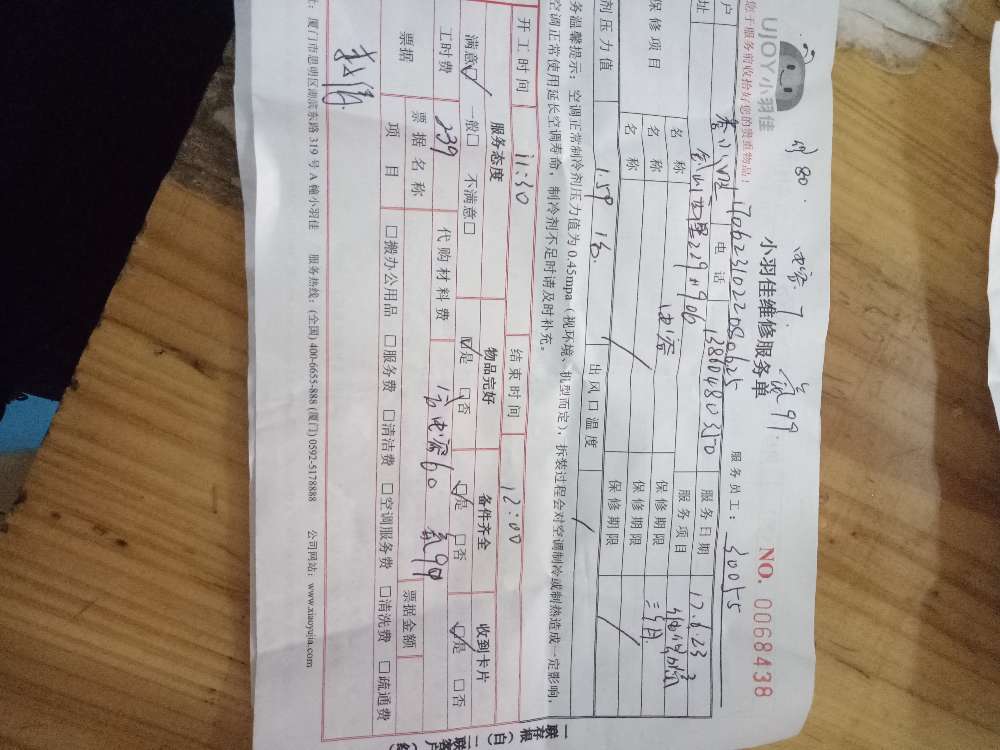 电容 7. 氟99
修80.
UJOY小羽佳
小羽佳维修服务单
NO. 00688438
您于服务前收拾好您的贵重物品!
服务员工: 30055
户 电话 13860480350 服务日期 17.6.23
1706231022080625
址 229#906 服务项目
保修项目 名称 电容 保修期限 三个月
名称 保修期限
名称 保修期限
剂压力值 1.59 出风口温度
务温馨提示:空调正常制冷剂压力值为0.45mpa(视环境、机型而定),拆装过程会对空调制冷或制热造成一定影响,
空调正常使用延长空调寿命,制冷剂不足时请及时补充。
开工时间 11:30 结束时间 12:00
服务态度 物品完好 备件齐全 收到卡片
满意☑ 一般□ 不满意□ ☑是 □否 ☑是 □否 ☑是 □否
工时费 239 代购材料费 含电容60 氟99
票据 票据名称 票据金额
项目 □搬办公用品 □服务费 □清洁费 □空调服务费 □清洗费 □疏通费
址:厦门市思明区湖滨东路319号A幢小羽佳 服务热线:(全国)400-6655-888 (厦门)0592-5178888 公司网站:www.xiaoyujia.com
一联存根(白) 二联客户